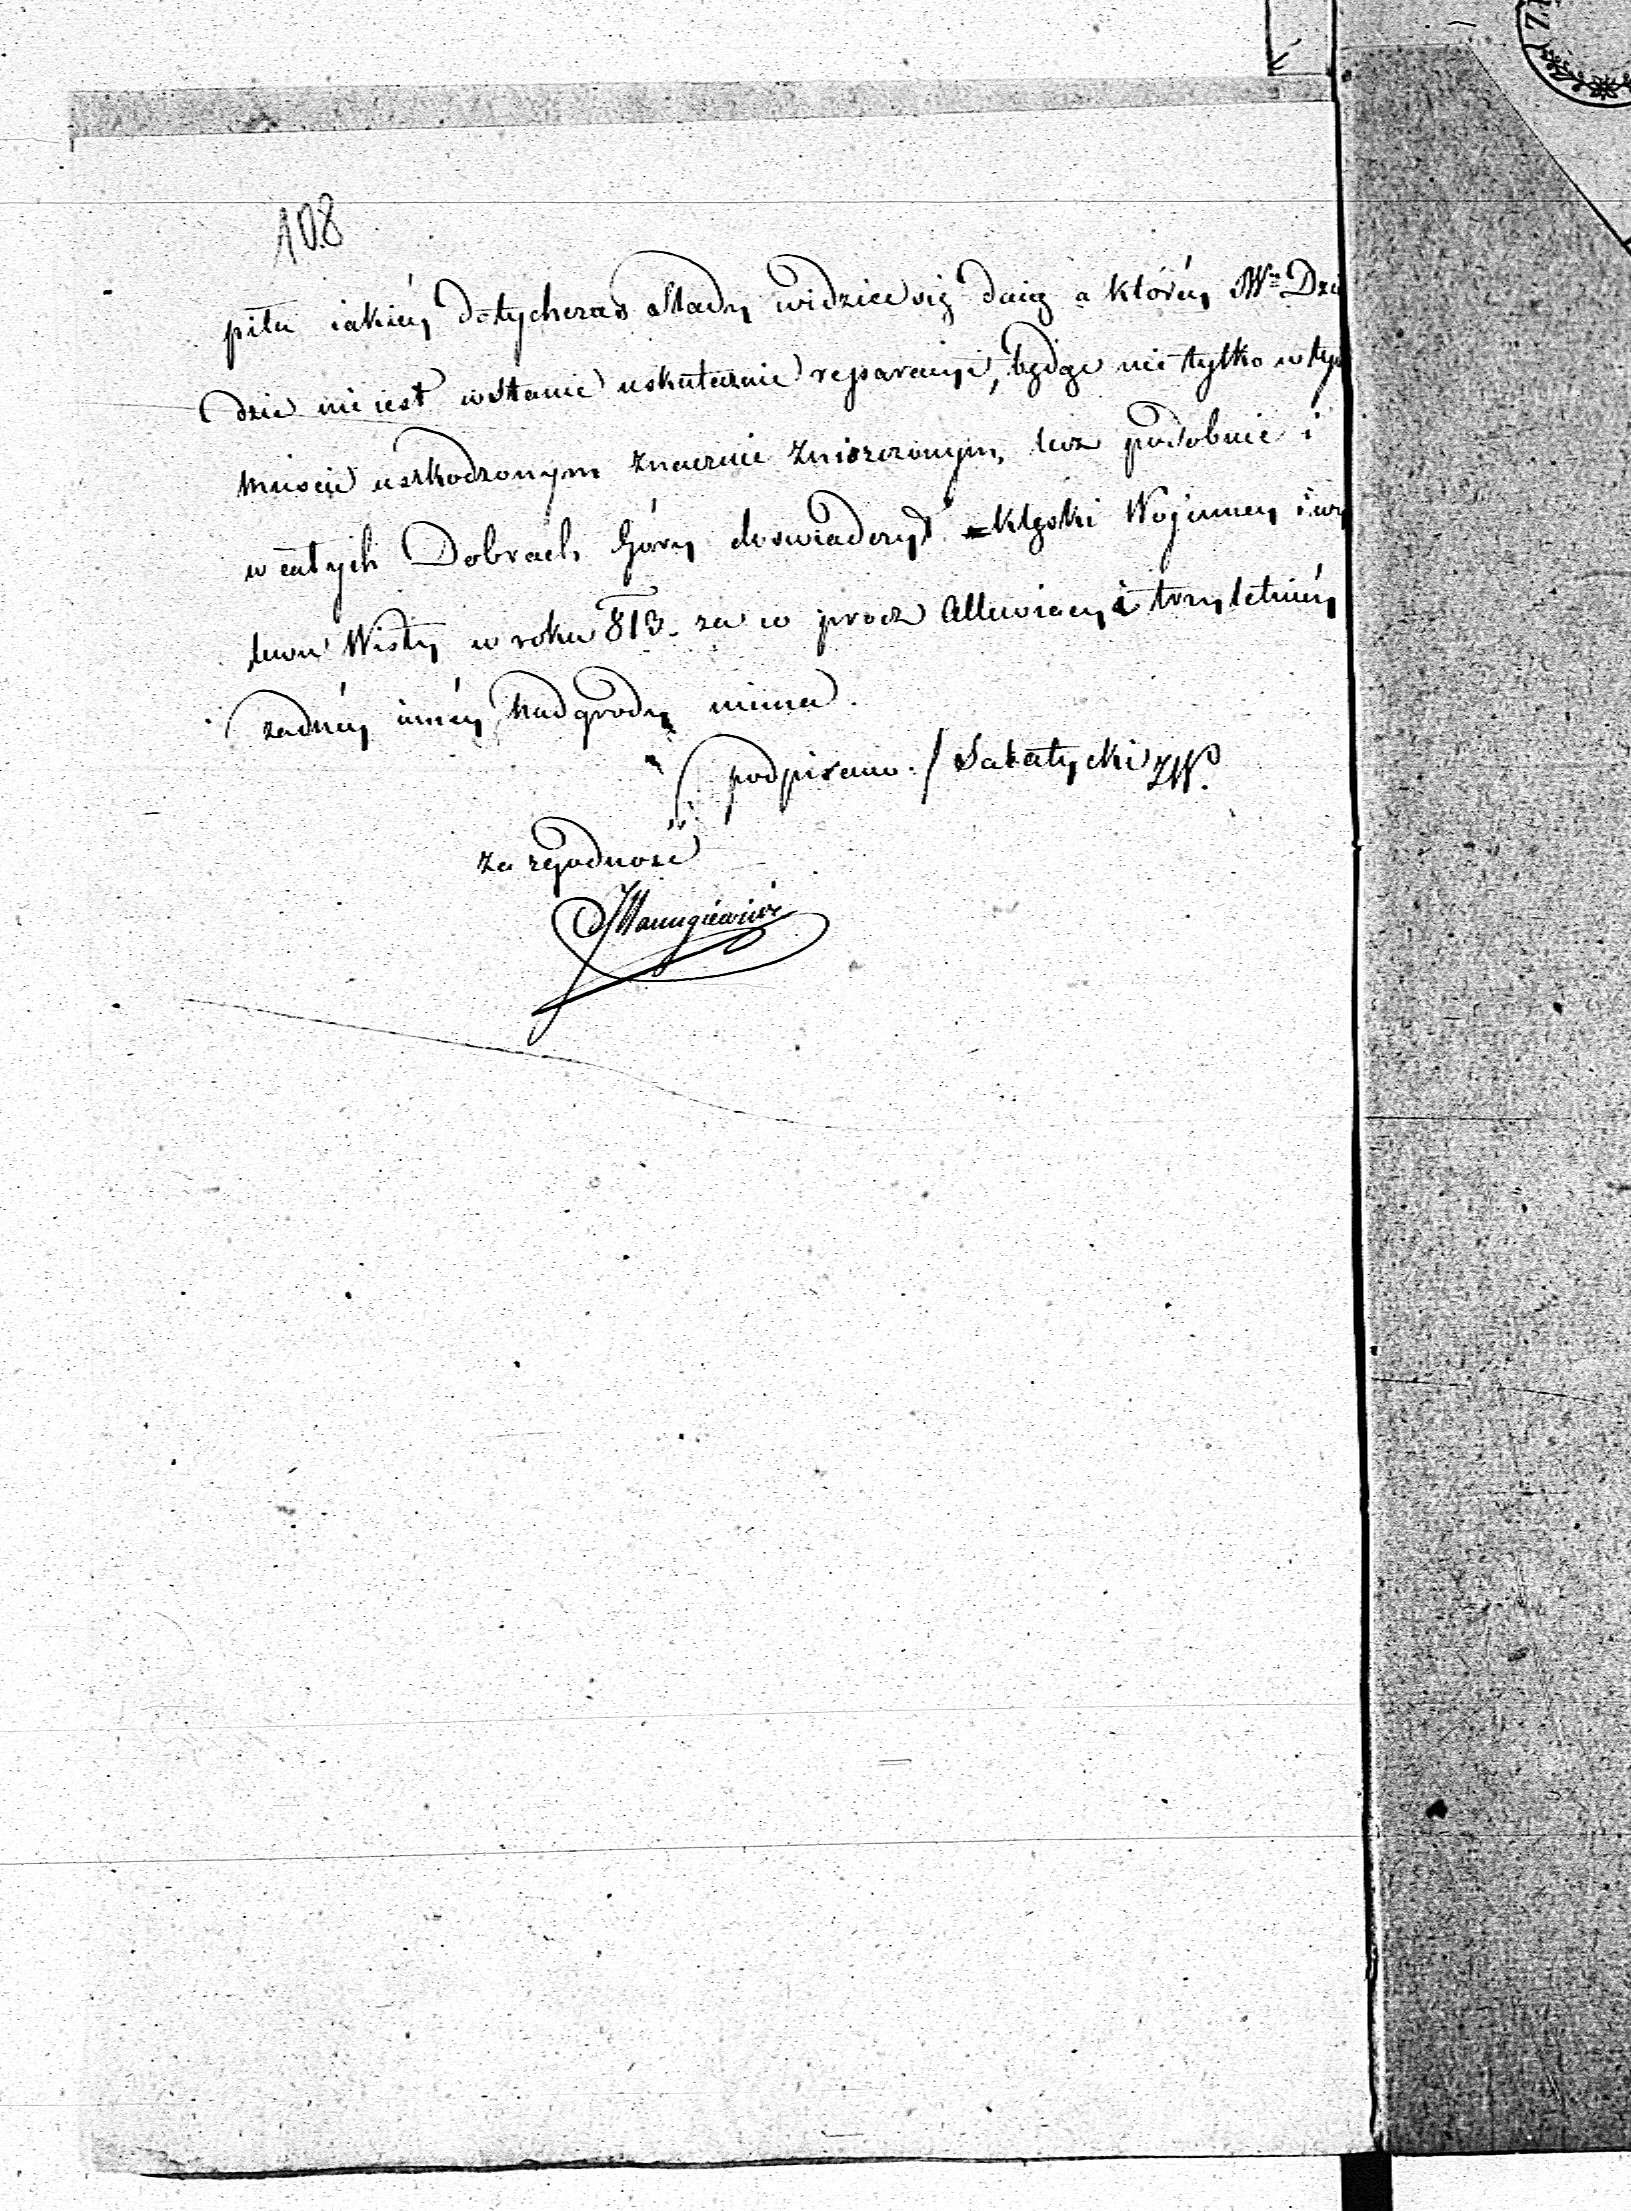 108
piła iakiéy dotychczas Slady widzieć się daią a któréy Wny Dzie
dzic nie iest wstanie uskutecznić reparacyi, będąc nie tylko w tym
mieście uszkodzonym znacznie zniszczonym, lecz podobnie i
w całych Dobrach Góry doswiadczył klęski Woienney i wy
lewu Wisły w roku 813. za co procz Allewiacyi trzyletniéy
żadnéy innéy nadgrody niema.
/podpisano./ Sakatycki ZW.
Za zgodność